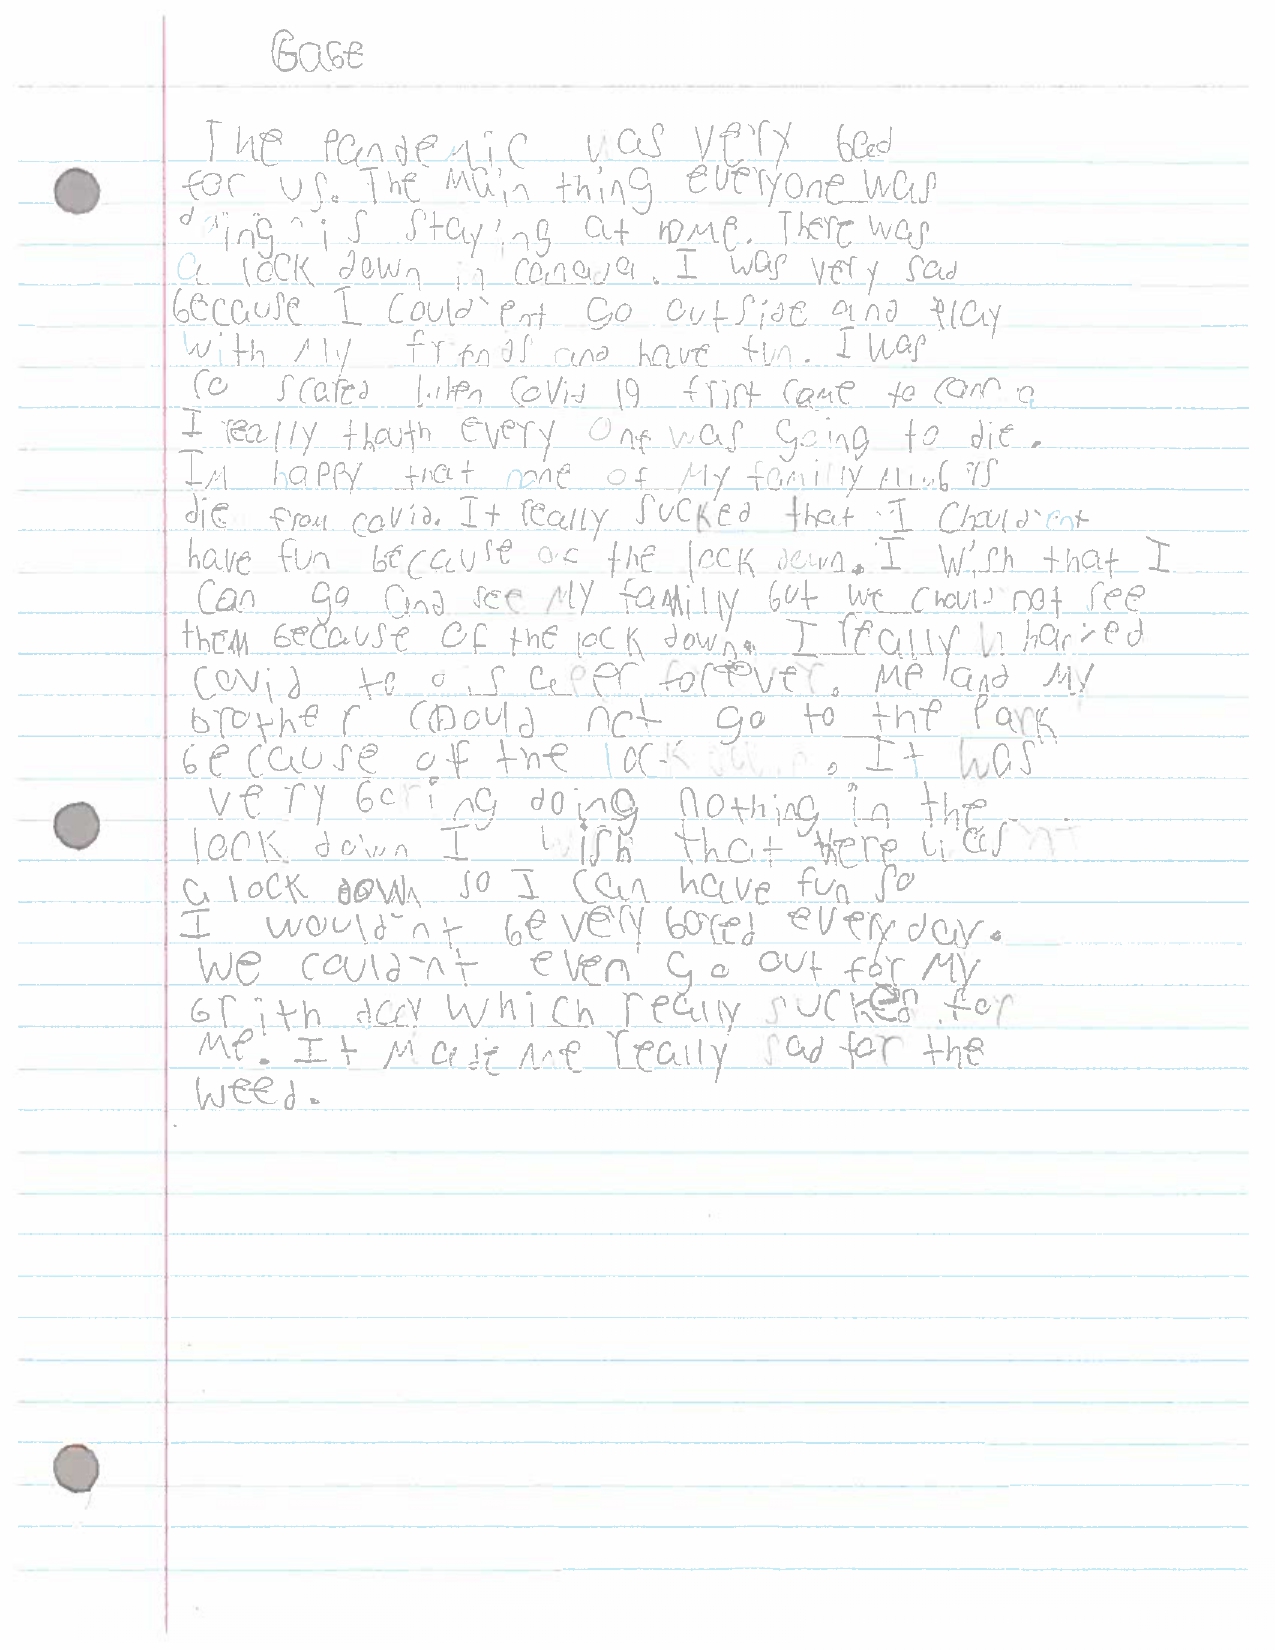 Gage
The pandemic was very bad
for us. The main thing everyone was
doing is staying at home. There was
a lock down in canada. I was very sad
because I could'ent go outside and play
with my friends and have fun. I was
so scared when covid 19 frist came to
I really thouth every one was going to die.
Im happy that none of my familly
die from covid. It really sucked that I chould'ent
have fun because of the lock down. I wish that I
can go and see my familly but we chould not see
them because of the lock down. I really
covid to forever. Me and my
brother could not go to the park
because of the lock down. It was
very boring doing nothing in the
lock down I wish that there wasn't
a lock down so I can have fun so
I would'nt be very bored every day.
We could'nt even go out for my
brith day which really sucked for
me. It made me really sad for the
weed.